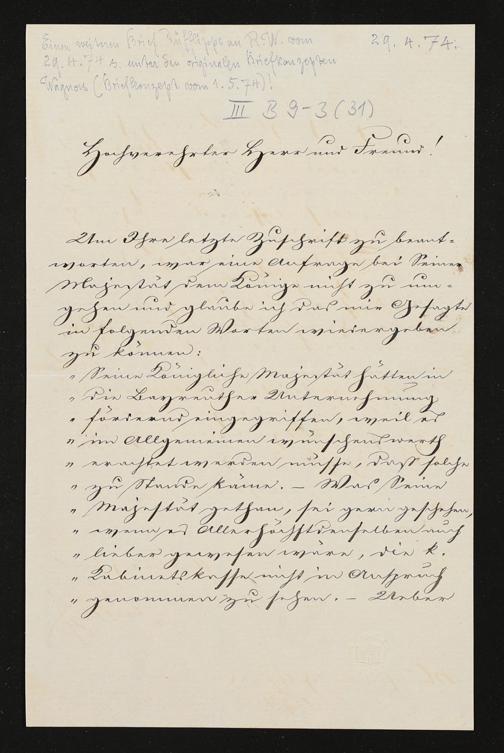 Einen weiteren Brief Düfflipps an R. W. vom
29. 4. 74 s. unter den originalen Briefkonzepten
Wagners (Briefkonzept vom 1. 5. 74)!
29. 4. 74.
III B 9-3 (31)
Hochverehrter Herr und Freund!
Um Ihre letzte Zuschrift zu beant-
worten, war eine Anfrage bei Seiner
Majestät dem Könige nicht zu um-
gehen und glaube ich das mir Gesagte
in folgenden Worten wiedergeben
zu können:
" Seine Königliche Majestät hätten in
" die Bayreuther Unternehmung
" fördernd eingegriffen, weil es
" im Allgemeinen wünschenswerth
" erachtet werden müsse, daß solche
" zu Stande käme. – Was Seine
" Majestät gethan, sei gern geschehen,
" wenn es Allerhöchstdenselben auch
" lieber gewesen wäre, die k.
" Kabinetskasse nicht in Anspruch
" genommen zu sehen. – Ueber